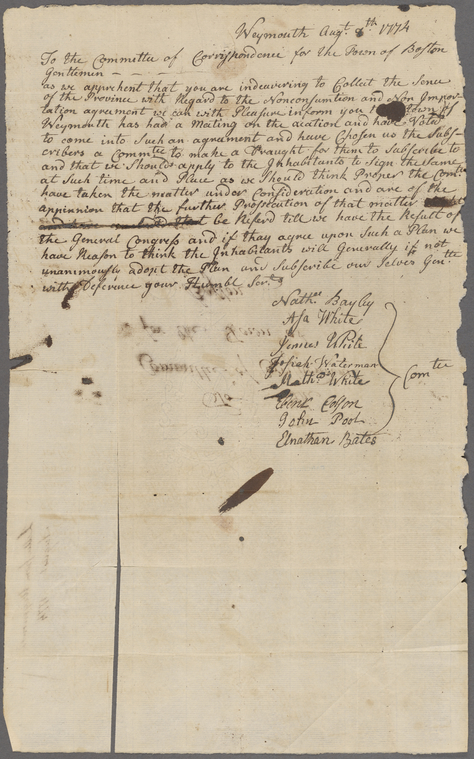 Weymouth Augt. 8th 1774
To the Committe of Correspondence for the Town of Boston
Gentlemen - - -
as we apprehent that you are indeavering to Collect the Sence
of the Province with Regard to the Nonconsumtion and Non Impor-
tation agreement we can with Pleasure inform you the Town of
Weymouth has had a Mating on the acation and have Voted
to come into Such an agrament and have Chosen us the Subs-
cribers a Committe to make a Draught for them to Subscribe to
and that we Should apply to the Inhabitants to Sign the same
at Such time and Place as we Should think Proper the Comtte
have taken the matter under Consideration and are of the
appinnion that the further Prosecution of that matter
be Referd till we have the Result of
the General Congress and if thay agree upon Such a Plan we
have Reason to think the Inhabitants will Generally if not
unanimously adopt the Plan and Subscribe our Selves Gentle
with Deference your Humbl Servts
Nathll Bayley
Asa White
James White
Josiah Waterman
Nathll White
Comtee
Ebenr Colson
John Pool
Elnathan Bates